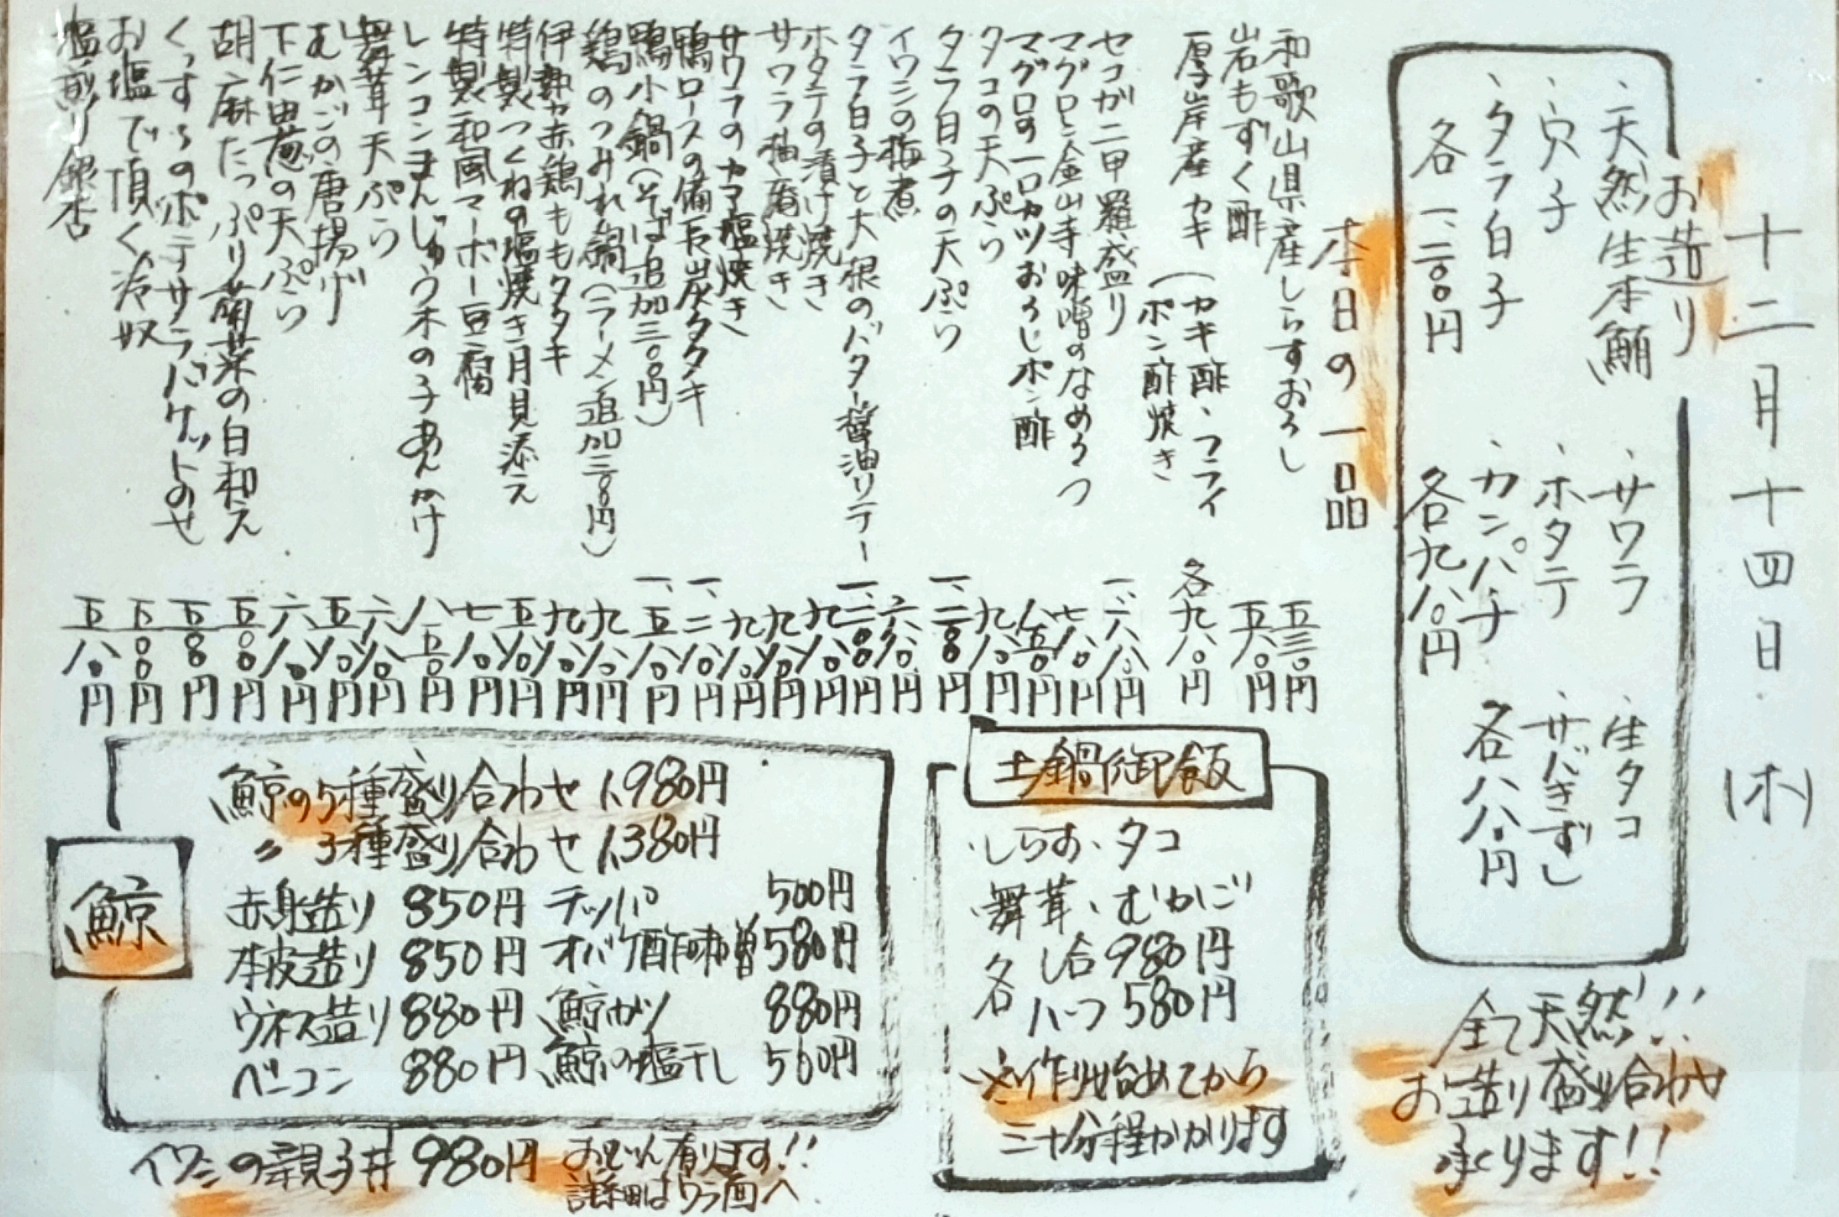 十二月十四日(木)
お造り
・天然生本鮪
・穴子
・タラ白子
各一、二〇〇円
・サワラ
・ホタテ
・カンパチ
各九八〇円
・生タコ
・サバきずし
各八八〇円
全て天然!!
お造り盛り合わせ
承ります!!
本日の一品
和歌山県産しらすおろし 五三〇円
岩もずく酢 五八〇円
厚岸産カキ(カキ酢・フライ
ポン酢焼き 各九八〇円
セコガニ甲羅盛り 一、六八〇円
マグロと金山寺味噌のなめろう 七八〇円
マグロの一口カツおろしポン酢 八五〇円
タコの天ぷら 九八〇円
タラ白子の天ぷら 一、二〇〇円
イワシの梅煮 六八〇円
タラ白子と大根のバター醤油ソテー 一、二〇〇円
ホタテの漬け焼き 九八〇円
サワラ柚庵焼き 九八〇円
サワラのカマ塩焼き 九八〇円
鴨ロースの備長炭タタキ 一、二八〇円
鴨小鍋(そば追加三〇〇円) 一、五八〇円
鶏のつみれ鍋(ラーメン追加三〇〇円) 九八〇円
伊勢赤鶏ももタタキ 九八〇円
特製つくねの塩焼き月見添え 五八〇円
特製和風マーボー豆腐 七八〇円
レンコンまんじゅう木の子あんかけ 八五〇円
舞茸天ぷら 六八〇円
むかごの唐揚げ 五八〇円
下仁田葱の天ぷら 六八〇円
胡麻たっぷり菊菜の白和え 五〇〇円
くっすうのポテサラバケットのせ 五八〇円
お塩で頂く冷奴 五〇〇円
塩煎り銀杏 五八〇円
土鍋御飯
・しらす、タコ
・舞茸、むかご
各 し合 980円
ハーフ 580円
※作り始めてから
三十分程かかります
鯨
鯨の5種盛り合わせ 1,980円
〃 3種盛り合わせ 1,380円
赤身造り 850円 テッパ 500円
本皮造り 850円 オバケ酢味噌 580円
ウネス造り 880円 鯨カツ 880円
ベーコン 880円 鯨の塩干し 560円
イワシの親子丼 980円
おでん有ります!!
詳細はウラ面へ